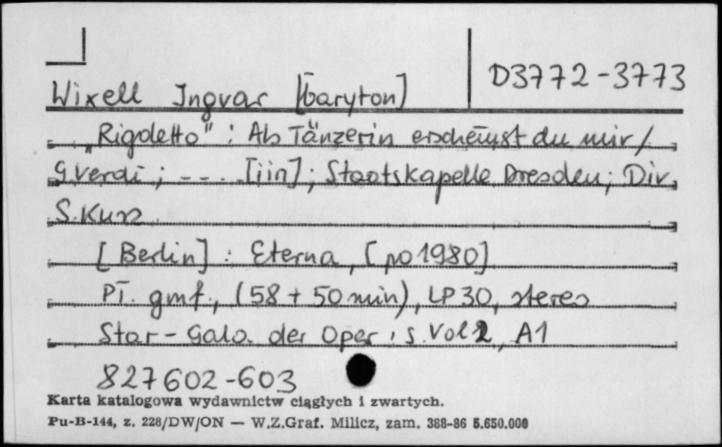 D3772-3773
Wixell Ingvar [baryton]
„Rigoletto": Als Tänzerin erscheinst du mir /
G. Verdi ; - - - . [iin] ; Staatskapelle Dresden ; Dir.
S. Kurz
[Berlin] : Eterna, [po 1980]
Pł. gmf., (58 + 50 min), LP 30, stereo
Star-Gala der Oper ; s. Vol 2, A1
827602-603
Karta katalogowa wydawnictw ciągłych i zwartych.
Pu-B-144, z. 228/DW/ON — W.Z.Graf. Milicz, zam. 388-86 5.650.000